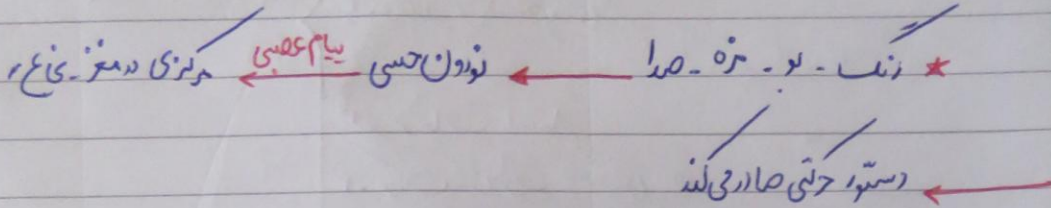 * رنگ - بو - مزه - صدا ← نورون حسی ← پیام عصبی مرکزی در مغز - نخاع،
← دستور حرکتی صادر می‌کند